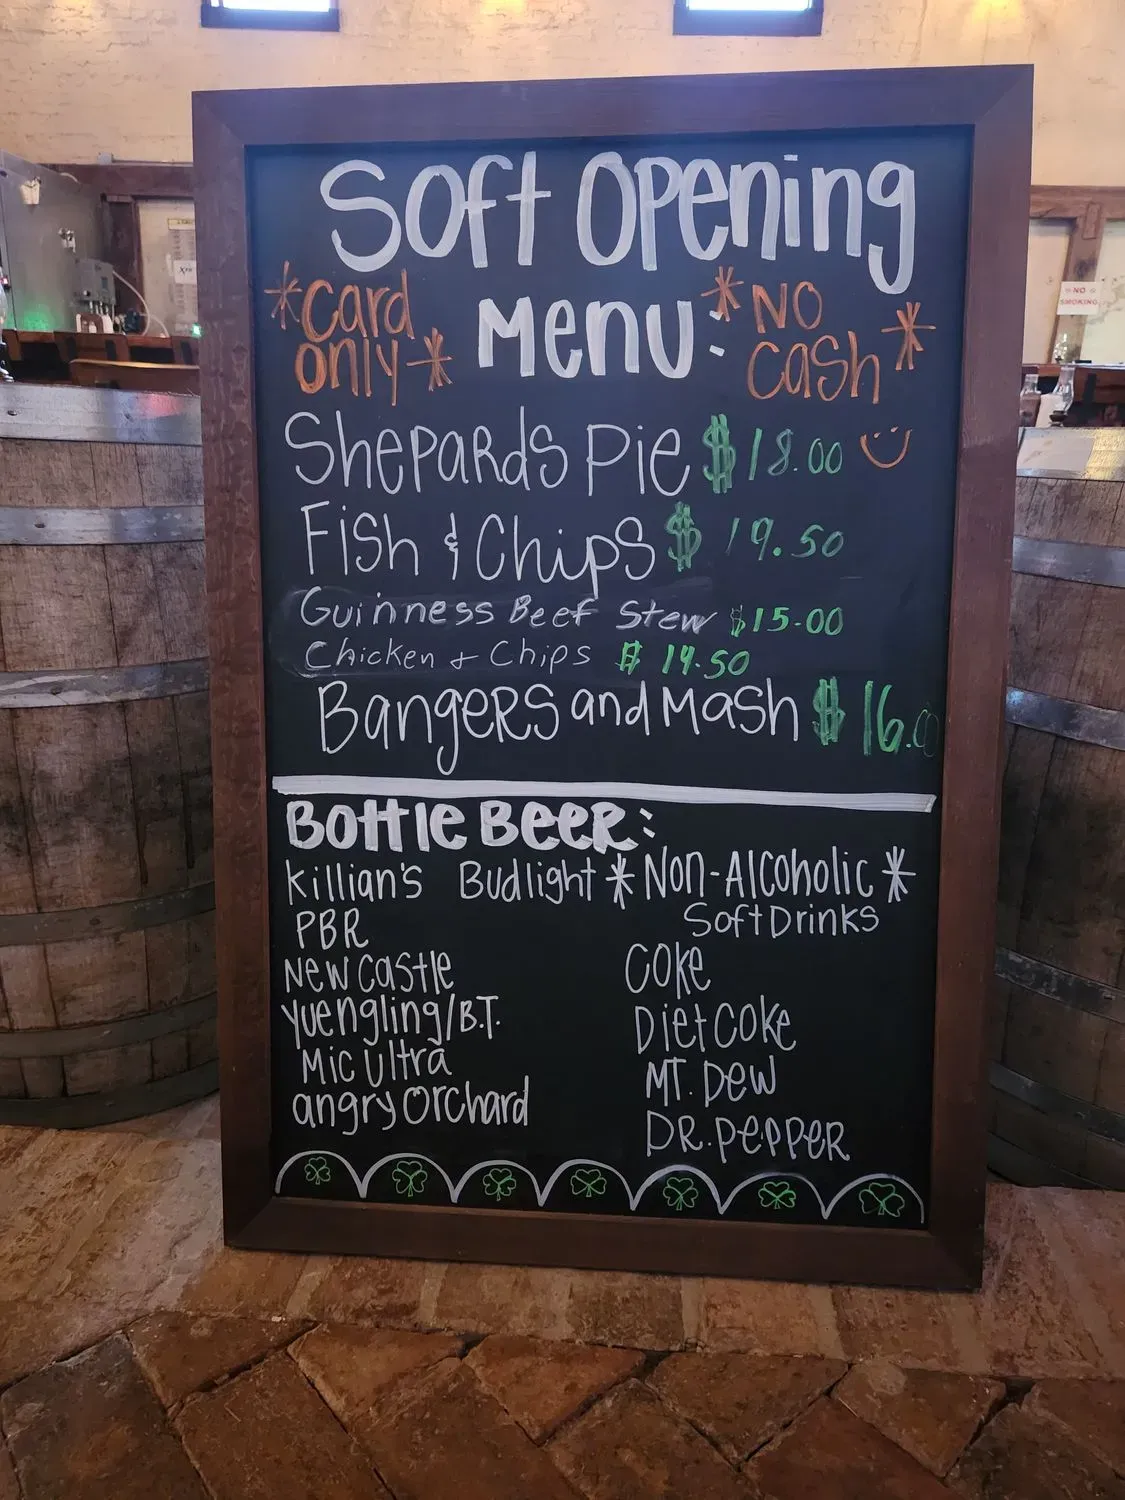 Soft Opening
*Card only*
Menu:
*NO Cash*
Shepards Pie $18.00
Fish & Chips $19.50
Guinness Beef Stew $15.00
Chicken + Chips $14.50
Bangers and Mash $16.00
Bottle Beer:
Killian's Budlight
PBR
New Castle
Yuengling/B.T.
Mic Ultra
angry orchard
*Non-Alcoholic*
Soft Drinks
Coke
Diet Coke
MT. Dew
DR. Pepper
NO
SMOKING